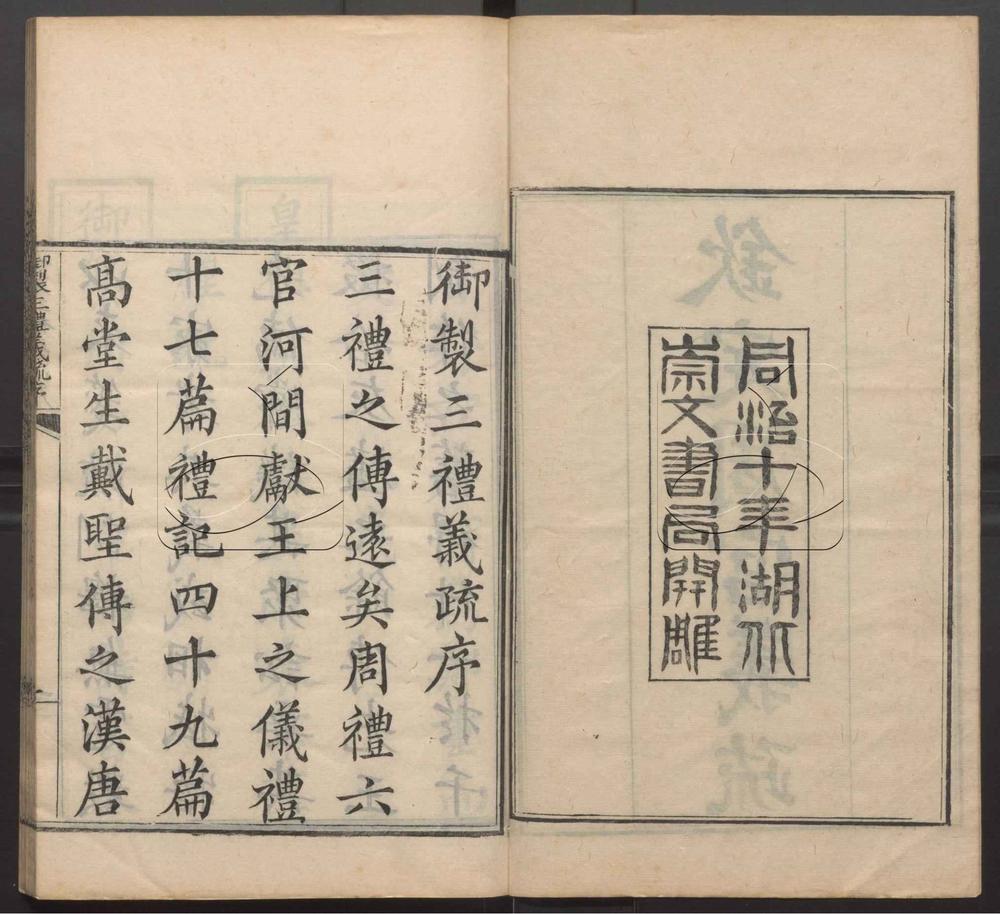 同治十年湖北
崇文書局開雕
御製三禮義疏序
三禮之傳遠矣周禮六
官河間獻王上之儀禮
十七篇禮記四十九篇
高堂生戴聖傳之漢唐
御製三禮義疏序